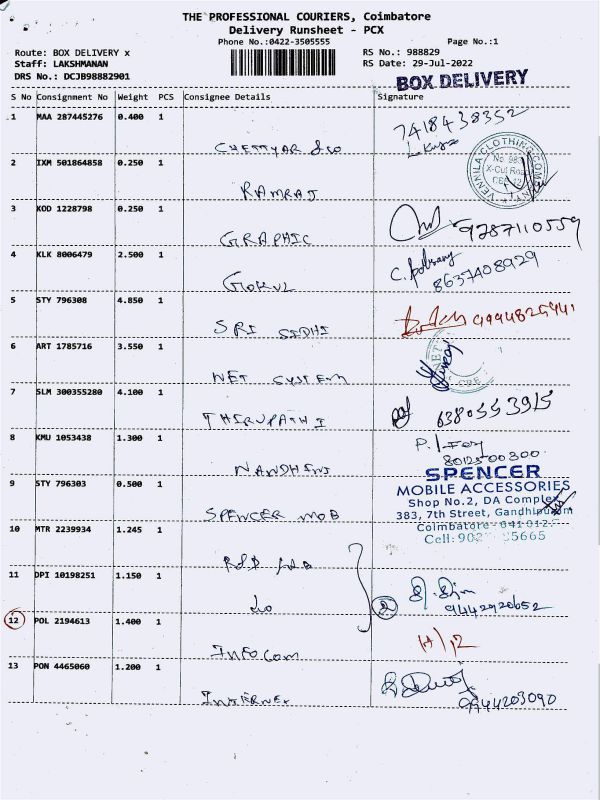 THE PROFESSIONAL COURIERS, Coimbatore
Delivery Runsheet - PCX
Phone No.:0422-3505555
Page No.:1
Route: BOX DELIVERY x
RS No.: 988829
Staff: LAKSHMANAN
RS Date: 29-Jul-2022
DRS No.: DCJB98882901
BOX DELIVERY
S No Consignment No Weight PCS Consignee Details Signature
1 MAA 287445276 0.400 1
7418438352
CHETTYAR & co
VENNILA CLOTHING COMPANY
2 IXM 501864858 0.250 1
RAMRAJ
3 KOD 1228798 0.250 1
9787110559
GRAPHIC
4 KLK 8006479 2.500 1
8637408929
GOKUL
5 STY 796308 4.850 1
9994825441
SRI SIDHI
6 ART 1785716 3.550 1
NET SYSTEM
7 SLM 300355280 4.100 1
6380553915
THIRUPATHI
8 KMU 1053438 1.300 1
8012500300
NANDHINI
9 STY 796303 0.500 1
SPENCER
MOBILE ACCESSORIES
Shop No.2, DA Complex
383, 7th Street, Gandhipuram
Coimbatore - 641 012
Cell:
5665
SPENCER MOB
10 MTR 2239934 1.245 1
11 DPI 10198251 1.150 1
do
9442920652
12 POL 2194613 1.400 1
INFOCOM
13 PON 4465060 1.200 1
9944203090
INTERNEX